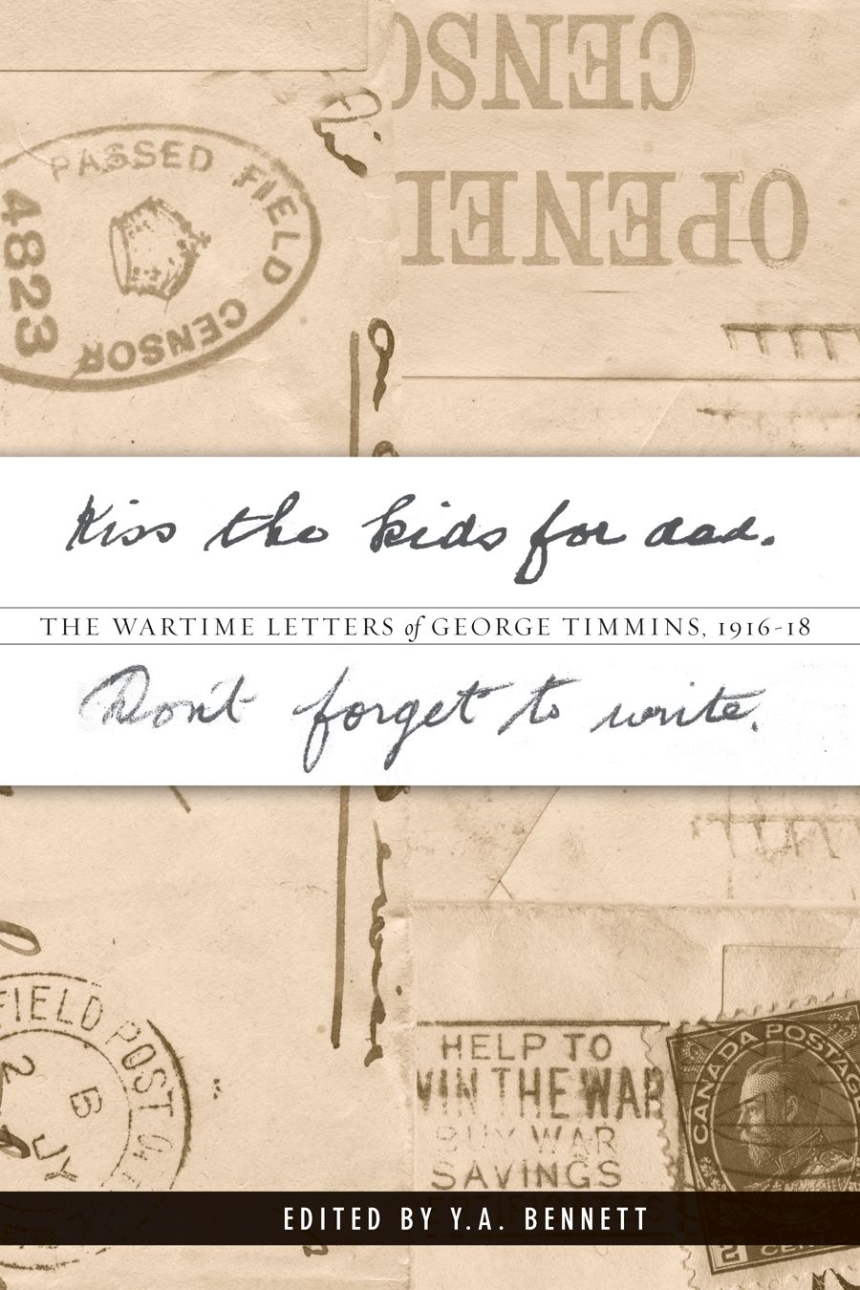 CENSO
OPENE
PASSED FIELD CENSOR
4823
Kiss the kids for dad.
THE WARTIME LETTERS of GEORGE TIMMINS, 1916-18
Don't forget to write.
FIELD POST
2
B
JY
HELP TO
WIN THE WAR
BUY WAR
SAVINGS
CANADA POSTAGE
2 CEN
EDITED BY Y.A. BENNETT